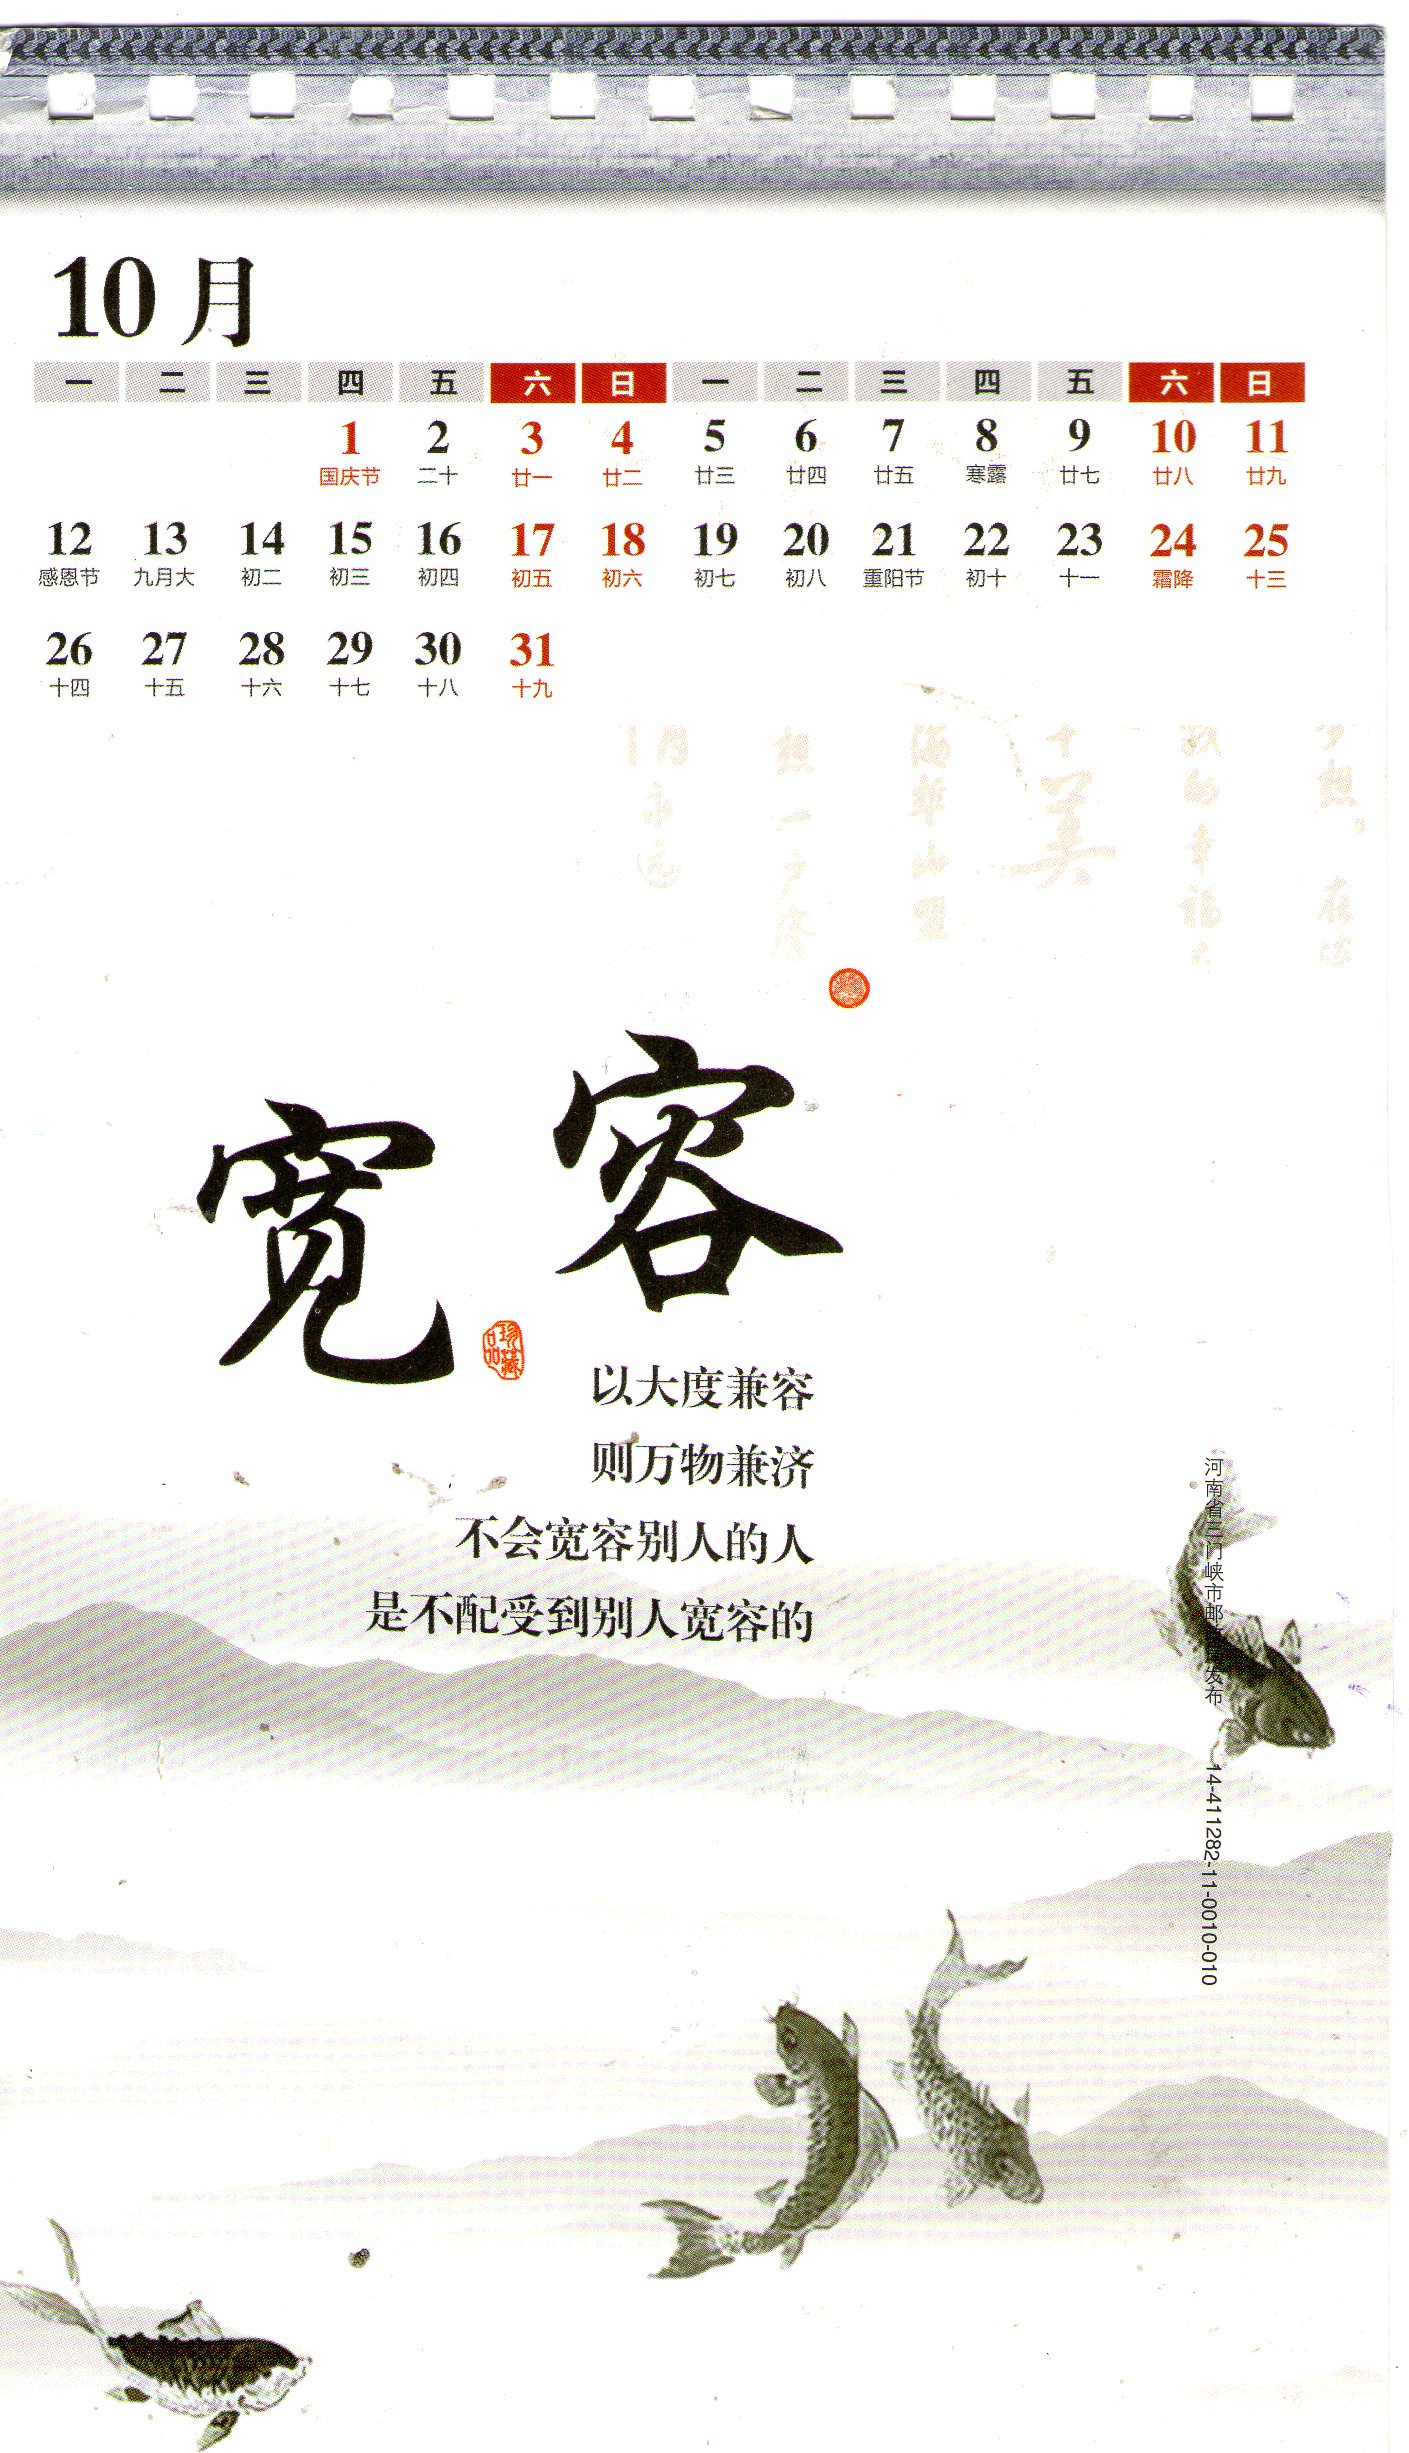 10 月
一 二 三 四 五 六 日 一 二 三 四 五 六 日
1 2 3 4 5 6 7 8 9 10 11
国庆节 二十 廿一 廿二 廿三 廿四 廿五 寒露 廿七 廿八 廿九
12 13 14 15 16 17 18 19 20 21 22 23 24 25
感恩节 九月大 初二 初三 初四 初五 初六 初七 初八 重阳节 初十 十一 霜降 十三
26 27 28 29 30 31
十四 十五 十六 十七 十八 十九
宽容
珍藏品
以大度兼容
则万物兼济
不会宽容别人的人
是不配受到别人宽容的
河南省三门峡市邮 发布 14-411282-11-0010-010